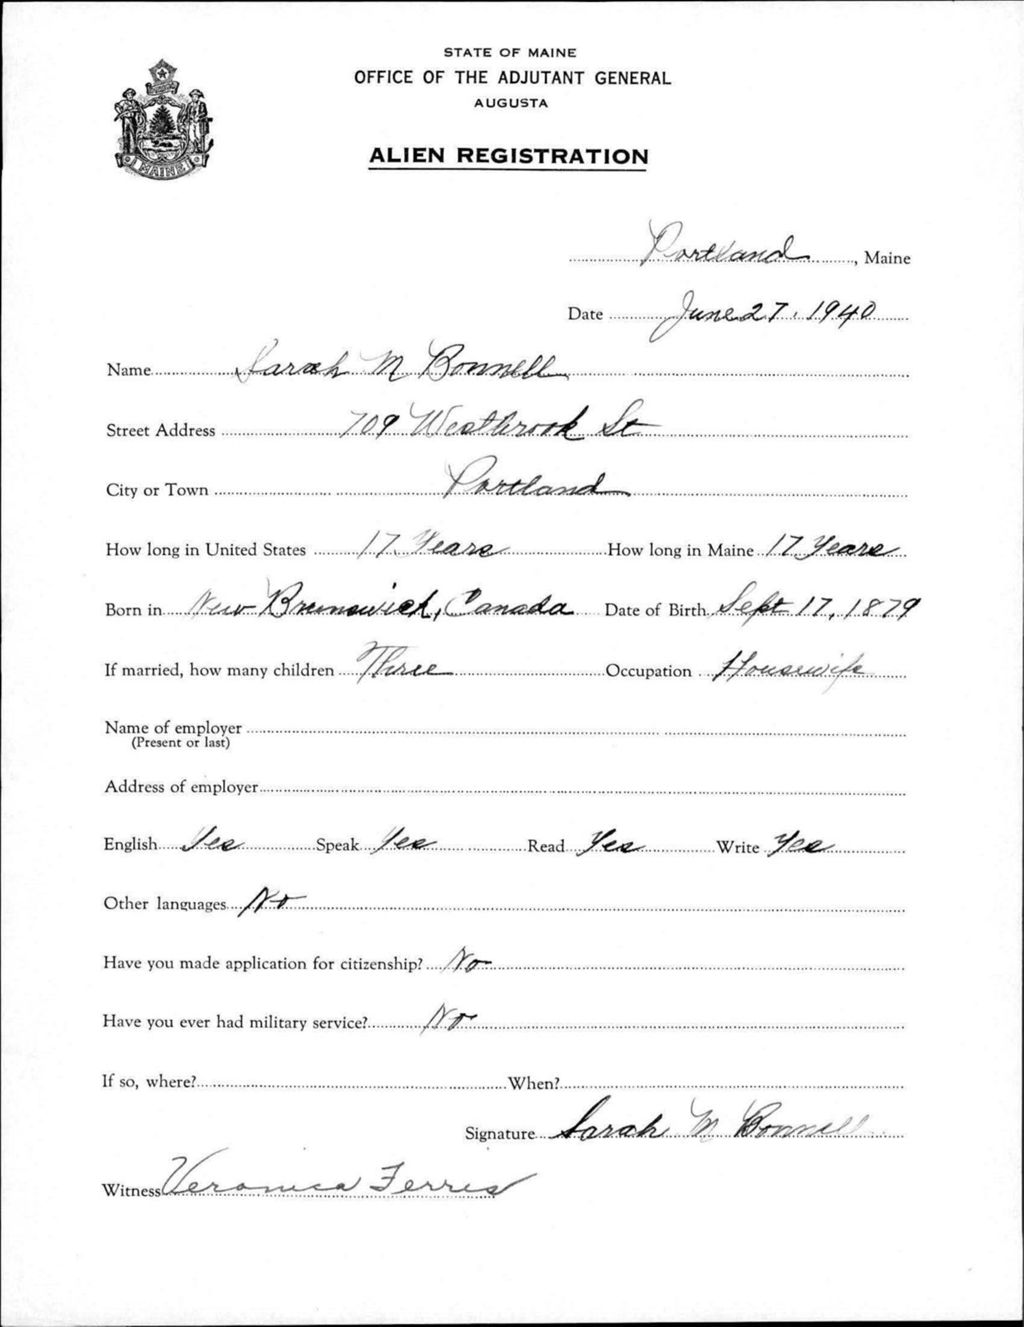 STATE OF MAINE
OFFICE OF THE ADJUTANT GENERAL
AUGUSTA
ALIEN REGISTRATION
MAINE
Portland, Maine
Date June 27, 1940
Name Sarah M Bonnell
Street Address 709 Westbrook St
City or Town Portland
How long in United States 17 Years How long in Maine 17 Years
Born in New Brunswick, Canada Date of Birth Sept 17, 1879
If married, how many children Three Occupation Housewife
Name of employer
(Present or last)
Address of employer
English Yes Speak Yes Read Yes Write Yes
Other languages No
Have you made application for citizenship? No
Have you ever had military service? No
If so, where? When?
Signature Sarah M Bonnell
Witness Veronica Ferris